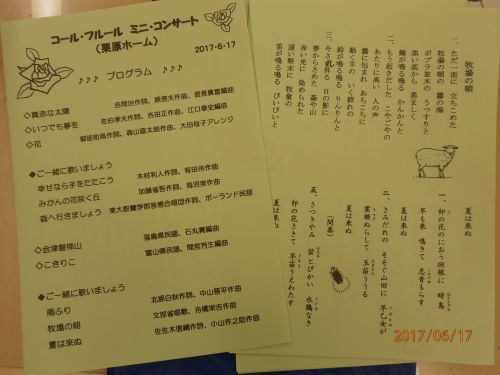 コール・フルール ミニ・コンサート
（栗原ホーム）
2017-6-17
♪♪♪ プログラム ♪♪♪
◇真赤な太陽 吉岡治作詞、原信夫作曲、信長貴富編曲
◇いつでも夢を 佐伯孝夫作詞、吉田正作曲、江口泰史編曲
◇花 御徒町凧作詞、森山直太朗作曲、大田桜子アレンジ
◆ご一緒に歌いましょう
幸せなら手をたたこう 木村利人作詞、有田怜作曲
みかんの花咲く丘 加藤省吾作詞、海沼実作曲
森へ行きましょう 東大教養学部音感合唱団作詞、ポーランド民謡
◇会津磐梯山 福島県民謡、石丸寛編曲
◇こきりこ 富山県民謡、間宮芳生編曲
◆ご一緒に歌いましょう
雨ふり 北原白秋作詞、中山晋平作曲
牧場の朝 文部省唱歌、舟橋栄吉作曲
夏は来ぬ 佐佐木信綱作詞、小山作之助作曲
牧場の朝
一、ただ一面に 立ちこめた
牧場の朝の 霧の海
ポプラ並木の うっすりと
黒い底から 勇ましく
鐘が鳴る鳴る かんかんと
二、もう起きだした こやごやの
あたりに高い 人の声
霧に包まれ あちこちに
動く羊の いく群れの
鈴が鳴る鳴る りんりんと
三、今さし昇る 日の影に
夢からさめた 森や山
赤い光に 染められた
遠い野末に 牧童の
笛が鳴る鳴る ぴいぴいと
夏は来ぬ
一、卯の花の におう垣根に 時鳥
早も来 鳴きて 忍音もらす
夏は来ぬ
二、さみだれの そそぐ山田に 早乙女が
裳裾ぬらして 玉苗ううる
夏は来ぬ
（間奏）
五、さつきやみ 蛍とびかい 水鶏なき
卯の花さきて 早苗うえわたす
夏は来ぬ
2017/06/17